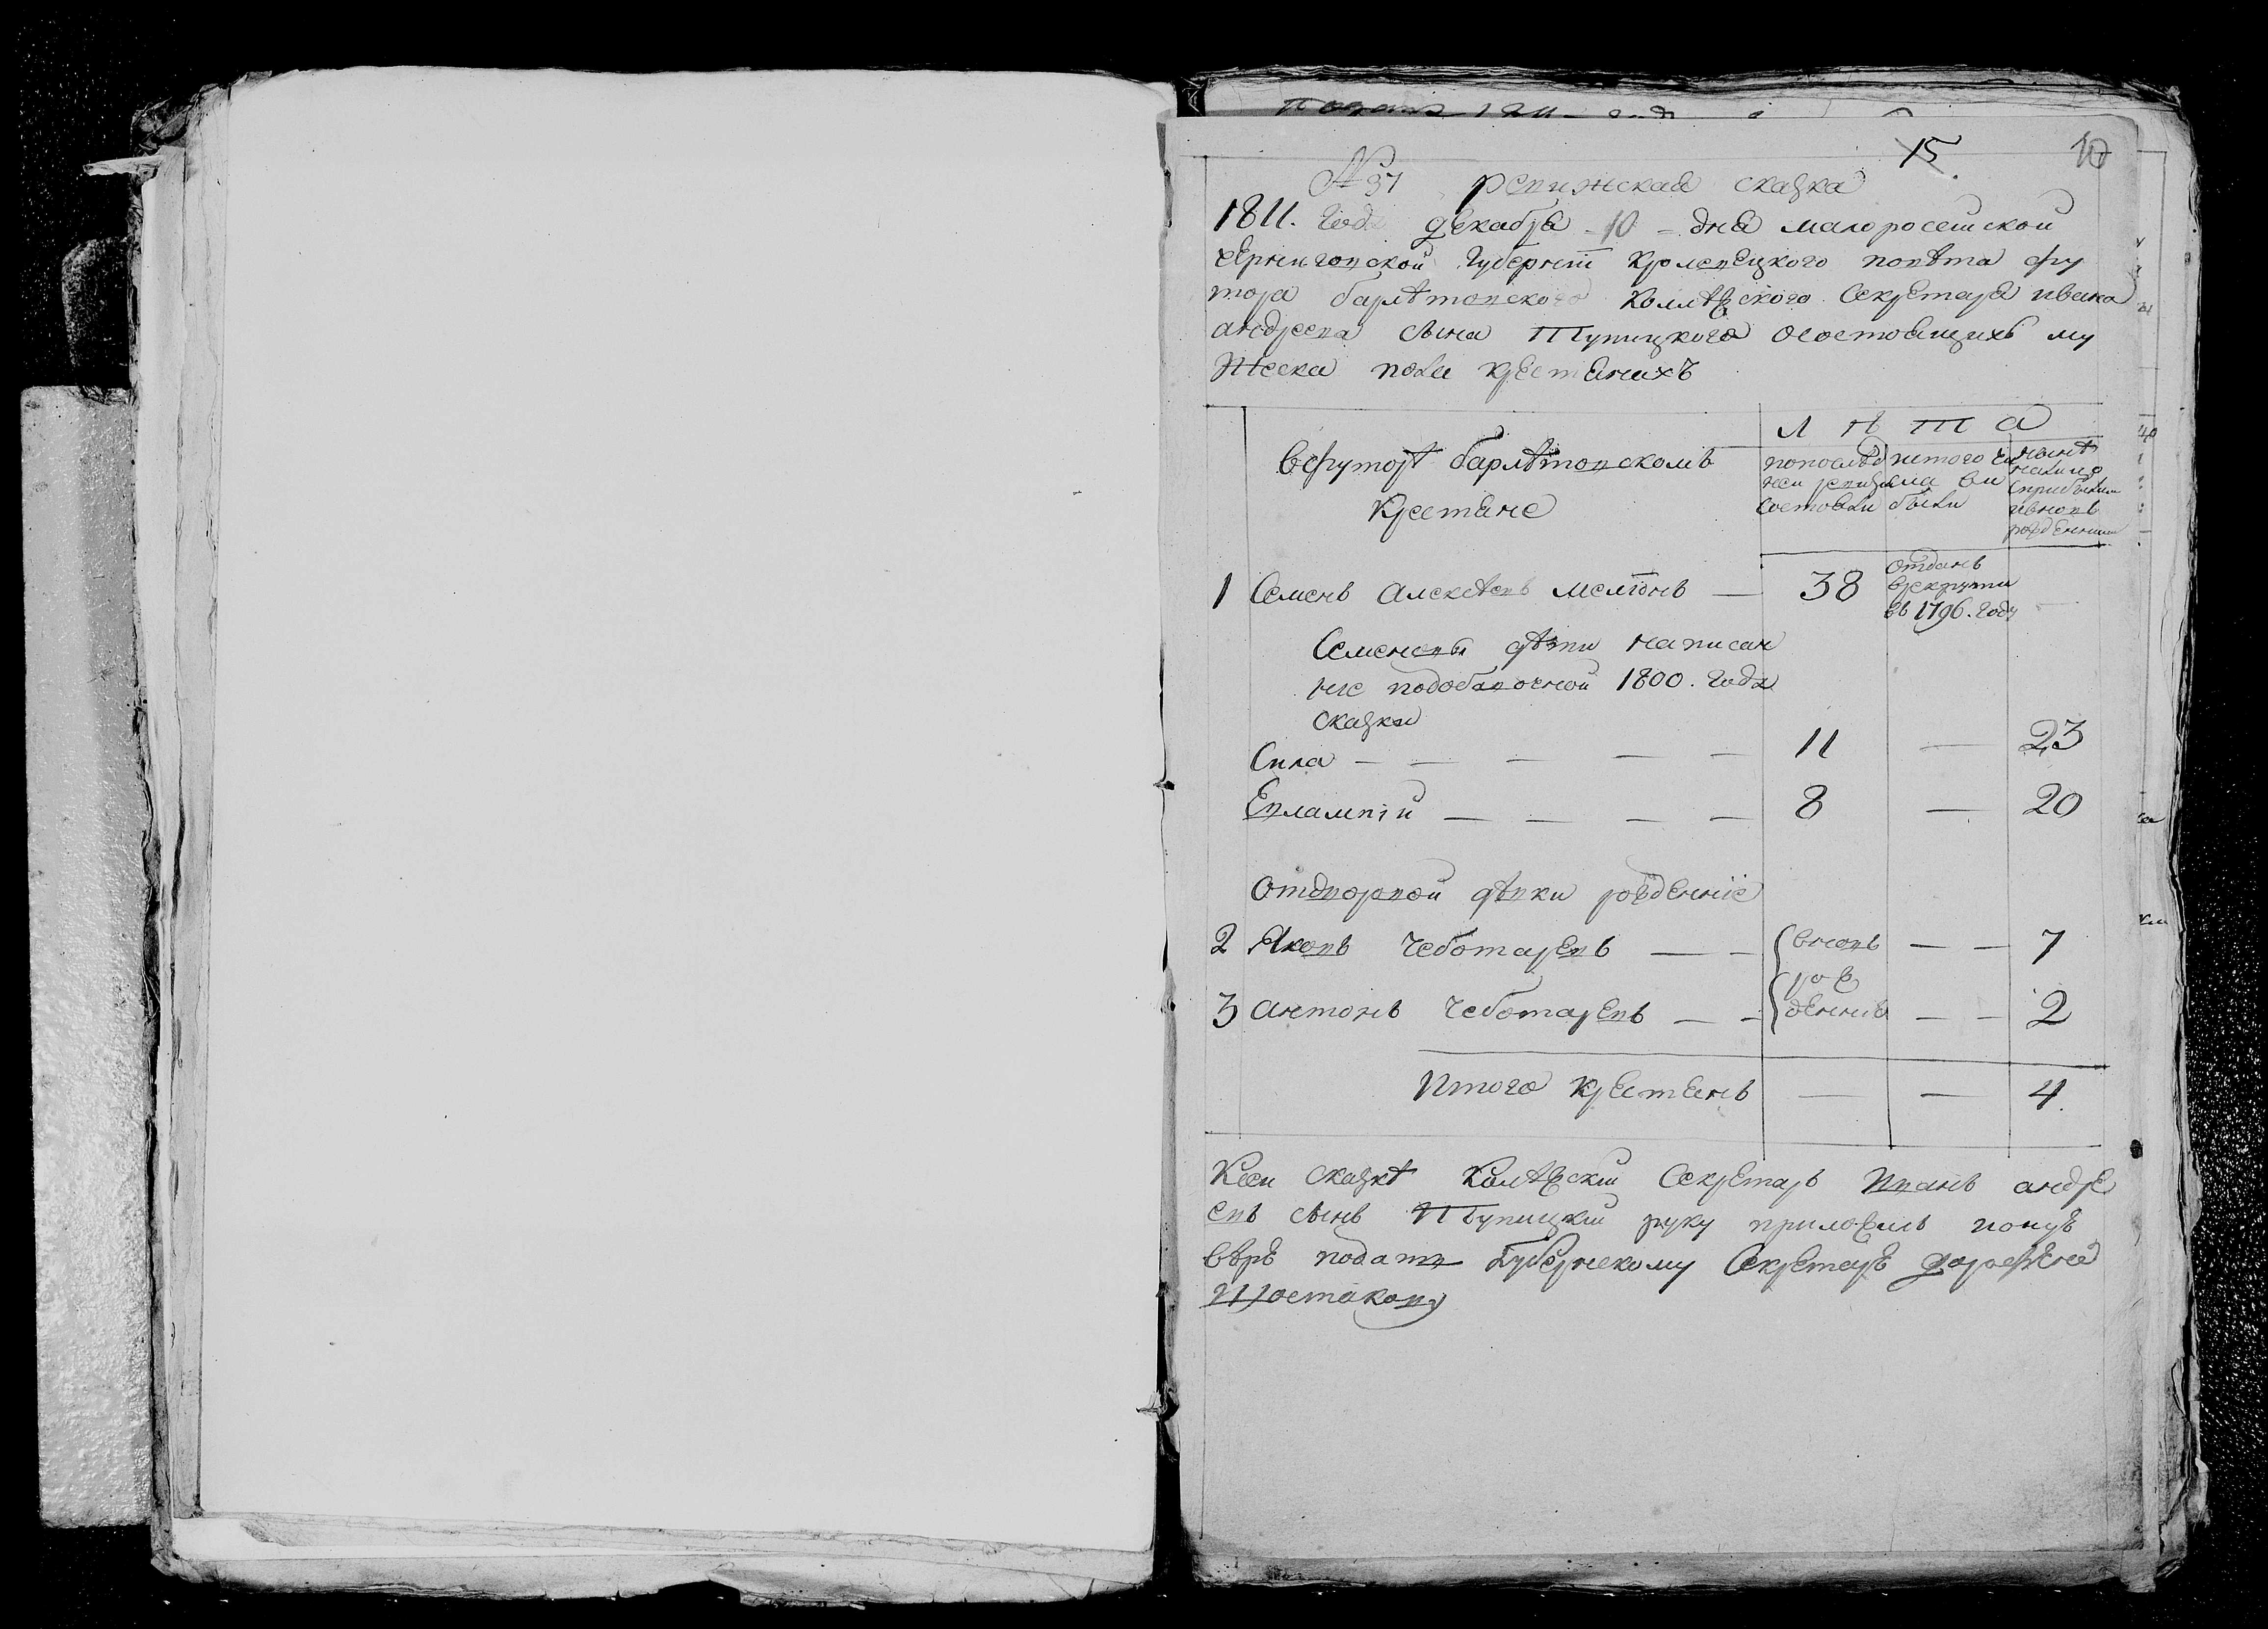 15 10
№ 37 ревижская сказка
1811. года декабря 10 дня малоросейской
черниговской губернїи кролевецкого повѣта фу
тора барѣтовского Коллѣжского Секретаря ивана
андреева сына Тупицкого осостоящихъ му
жеска пола крестянахъ
вфуторѣ барлѣтовскомъ
Крестяне
Л ѣ т а
попослед
ней ревизїи
состояли
истого числа вы
были
нынѣ
налицо
сприбылыми
ивновь
рожденными
1 Семенъ алексѣевъ мелїонъ — 38
отданъ
врекруты
въ 1796. году
Семеновы дѣти написан
ние подобавочной 1800. года
сказки
Сила — 11 — 23
Евлампїй — 8 — 20
отдворовой дѣвки рожденнїе
2 Яковъ Чеботаревъ — вновь — 7
рож
3 антонъ чеботаревъ — денние — 2
Итого крестянъ — — 4
Ксей сказкѣ Колѣжский Секретарь Иванъ андре
евъ сынъ Тупицкий руку приложилъ ионую
вѣрю подать Губернскому Секретарю
Простакову